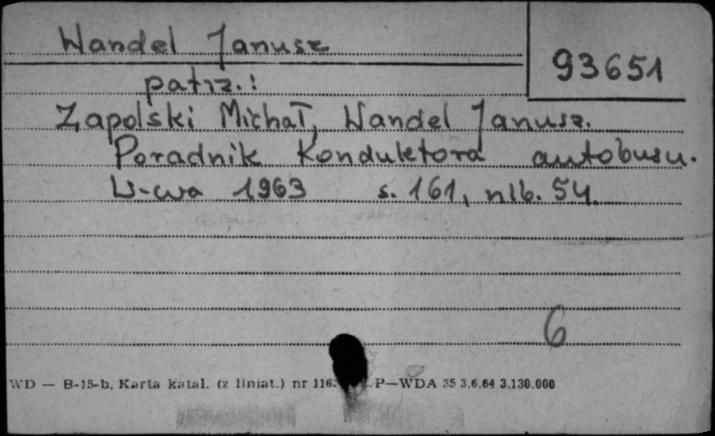 Wandel Janusz
93651
patrz.:
Zapolski Michał, Wandel Janusz.
Poradnik Konduktora autobusu.
W-wa 1963 s. 161, nlb. 54.
6
WD — B-15-b, Karta katal. (z liniat.) nr 116 P—WDA 35 3.6.64 3.130.000